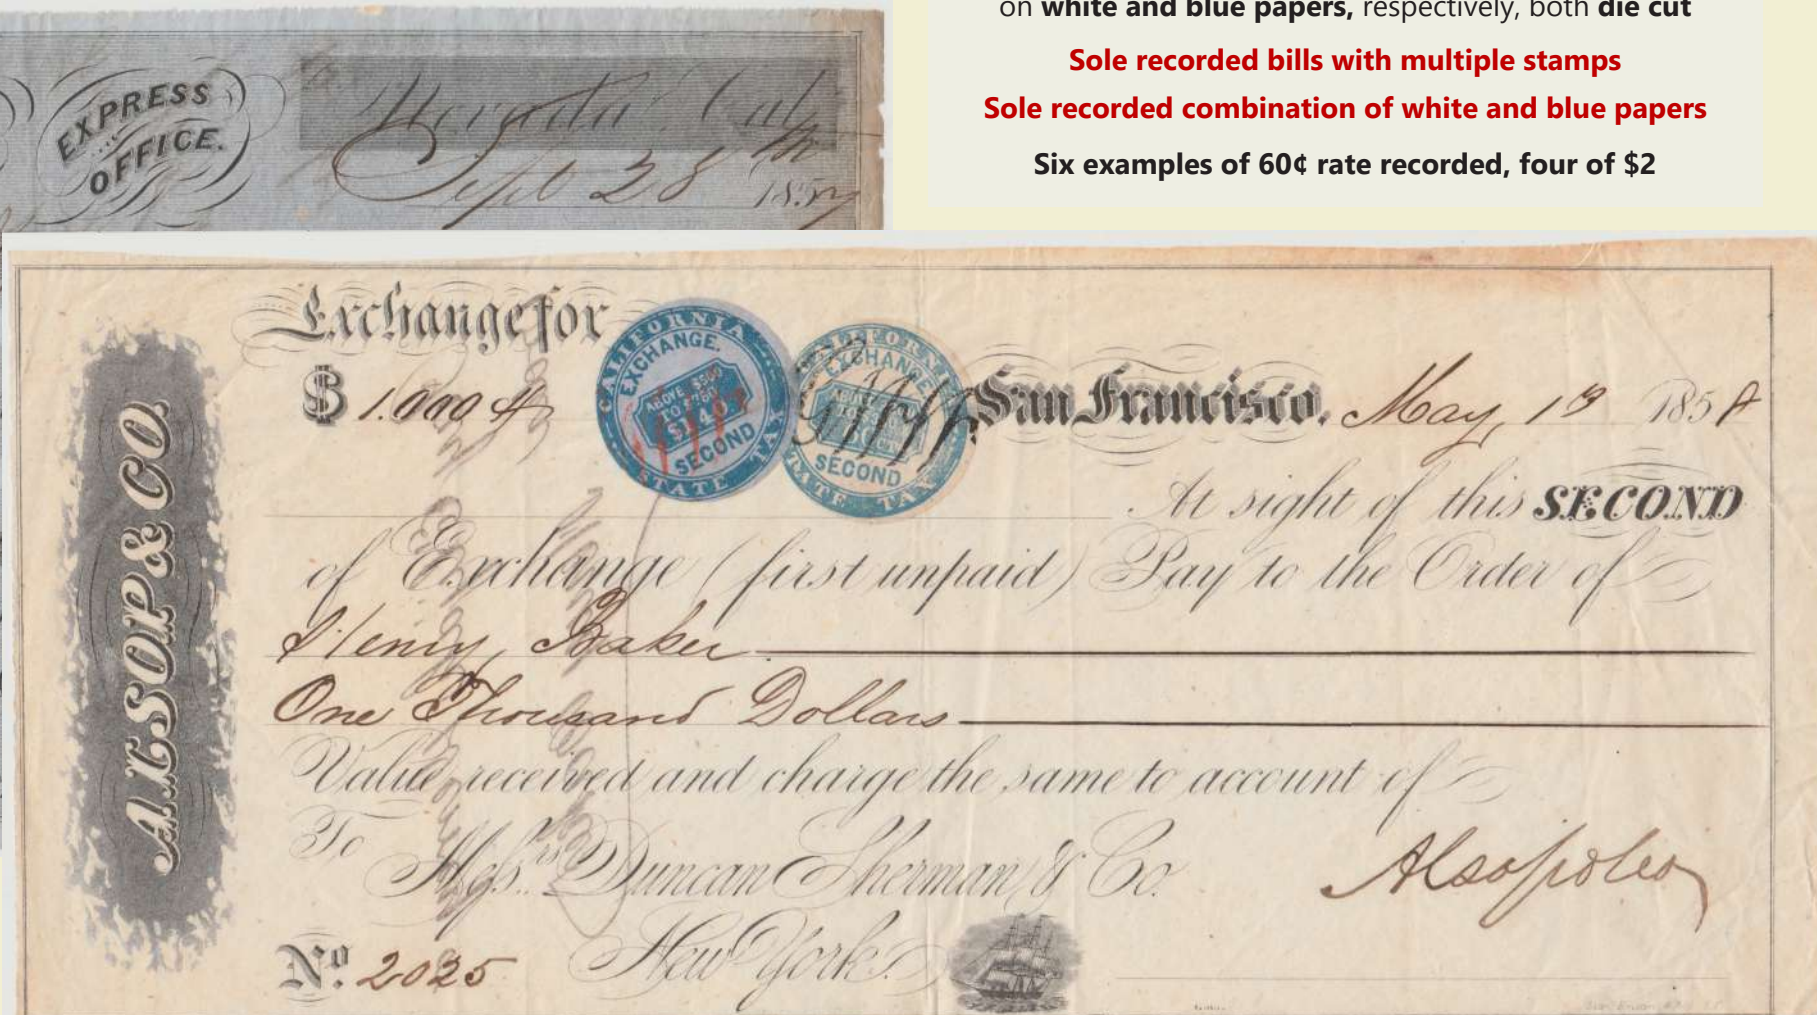 on white and blue papers, respectively, both die cut
Sole recorded bills with multiple stamps
Sole recorded combination of white and blue papers
Six examples of 60¢ rate recorded, four of $2
EXPRESS
OFFICE.
Nevada Cal
Sept 28th 1857
Exchange for
$ 1.000
CALIFORNIA
EXCHANGE.
ABOVE
TO
SECOND
STATE TAX
CALIFORNIA
EXCHANGE
SECOND
STATE TAX
San Francisco. May 19 1858
At sight of this SECOND
of Exchange (first unpaid) Pay to the Order of
Henry Baker
One Thousand Dollars
Value received and charge the same to account of
To Messrs Duncan Sherman & Co.
New York.
Alsop & Co
No. 2025
ALSOP & CO.